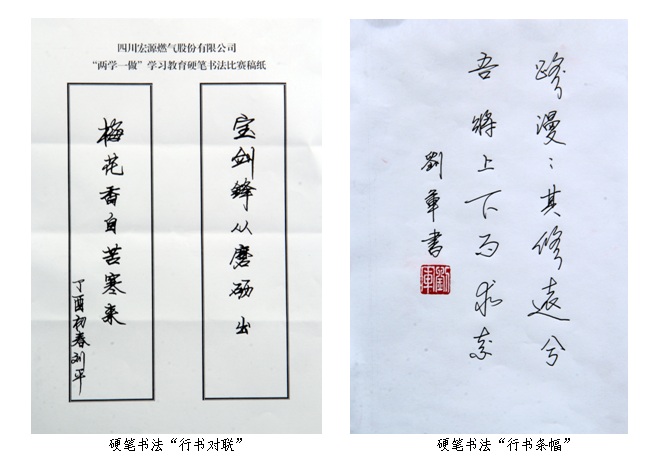 四川宏源燃气股份有限公司
“两学一做”学习教育硬笔书法比赛稿纸
宝剑锋从磨砺出
梅花香自苦寒来
丁酉初春刘平
路漫:其修远兮
吾将上下而求索
劉軍書
劉軍
硬笔书法“行书对联”
硬笔书法“行书条幅”